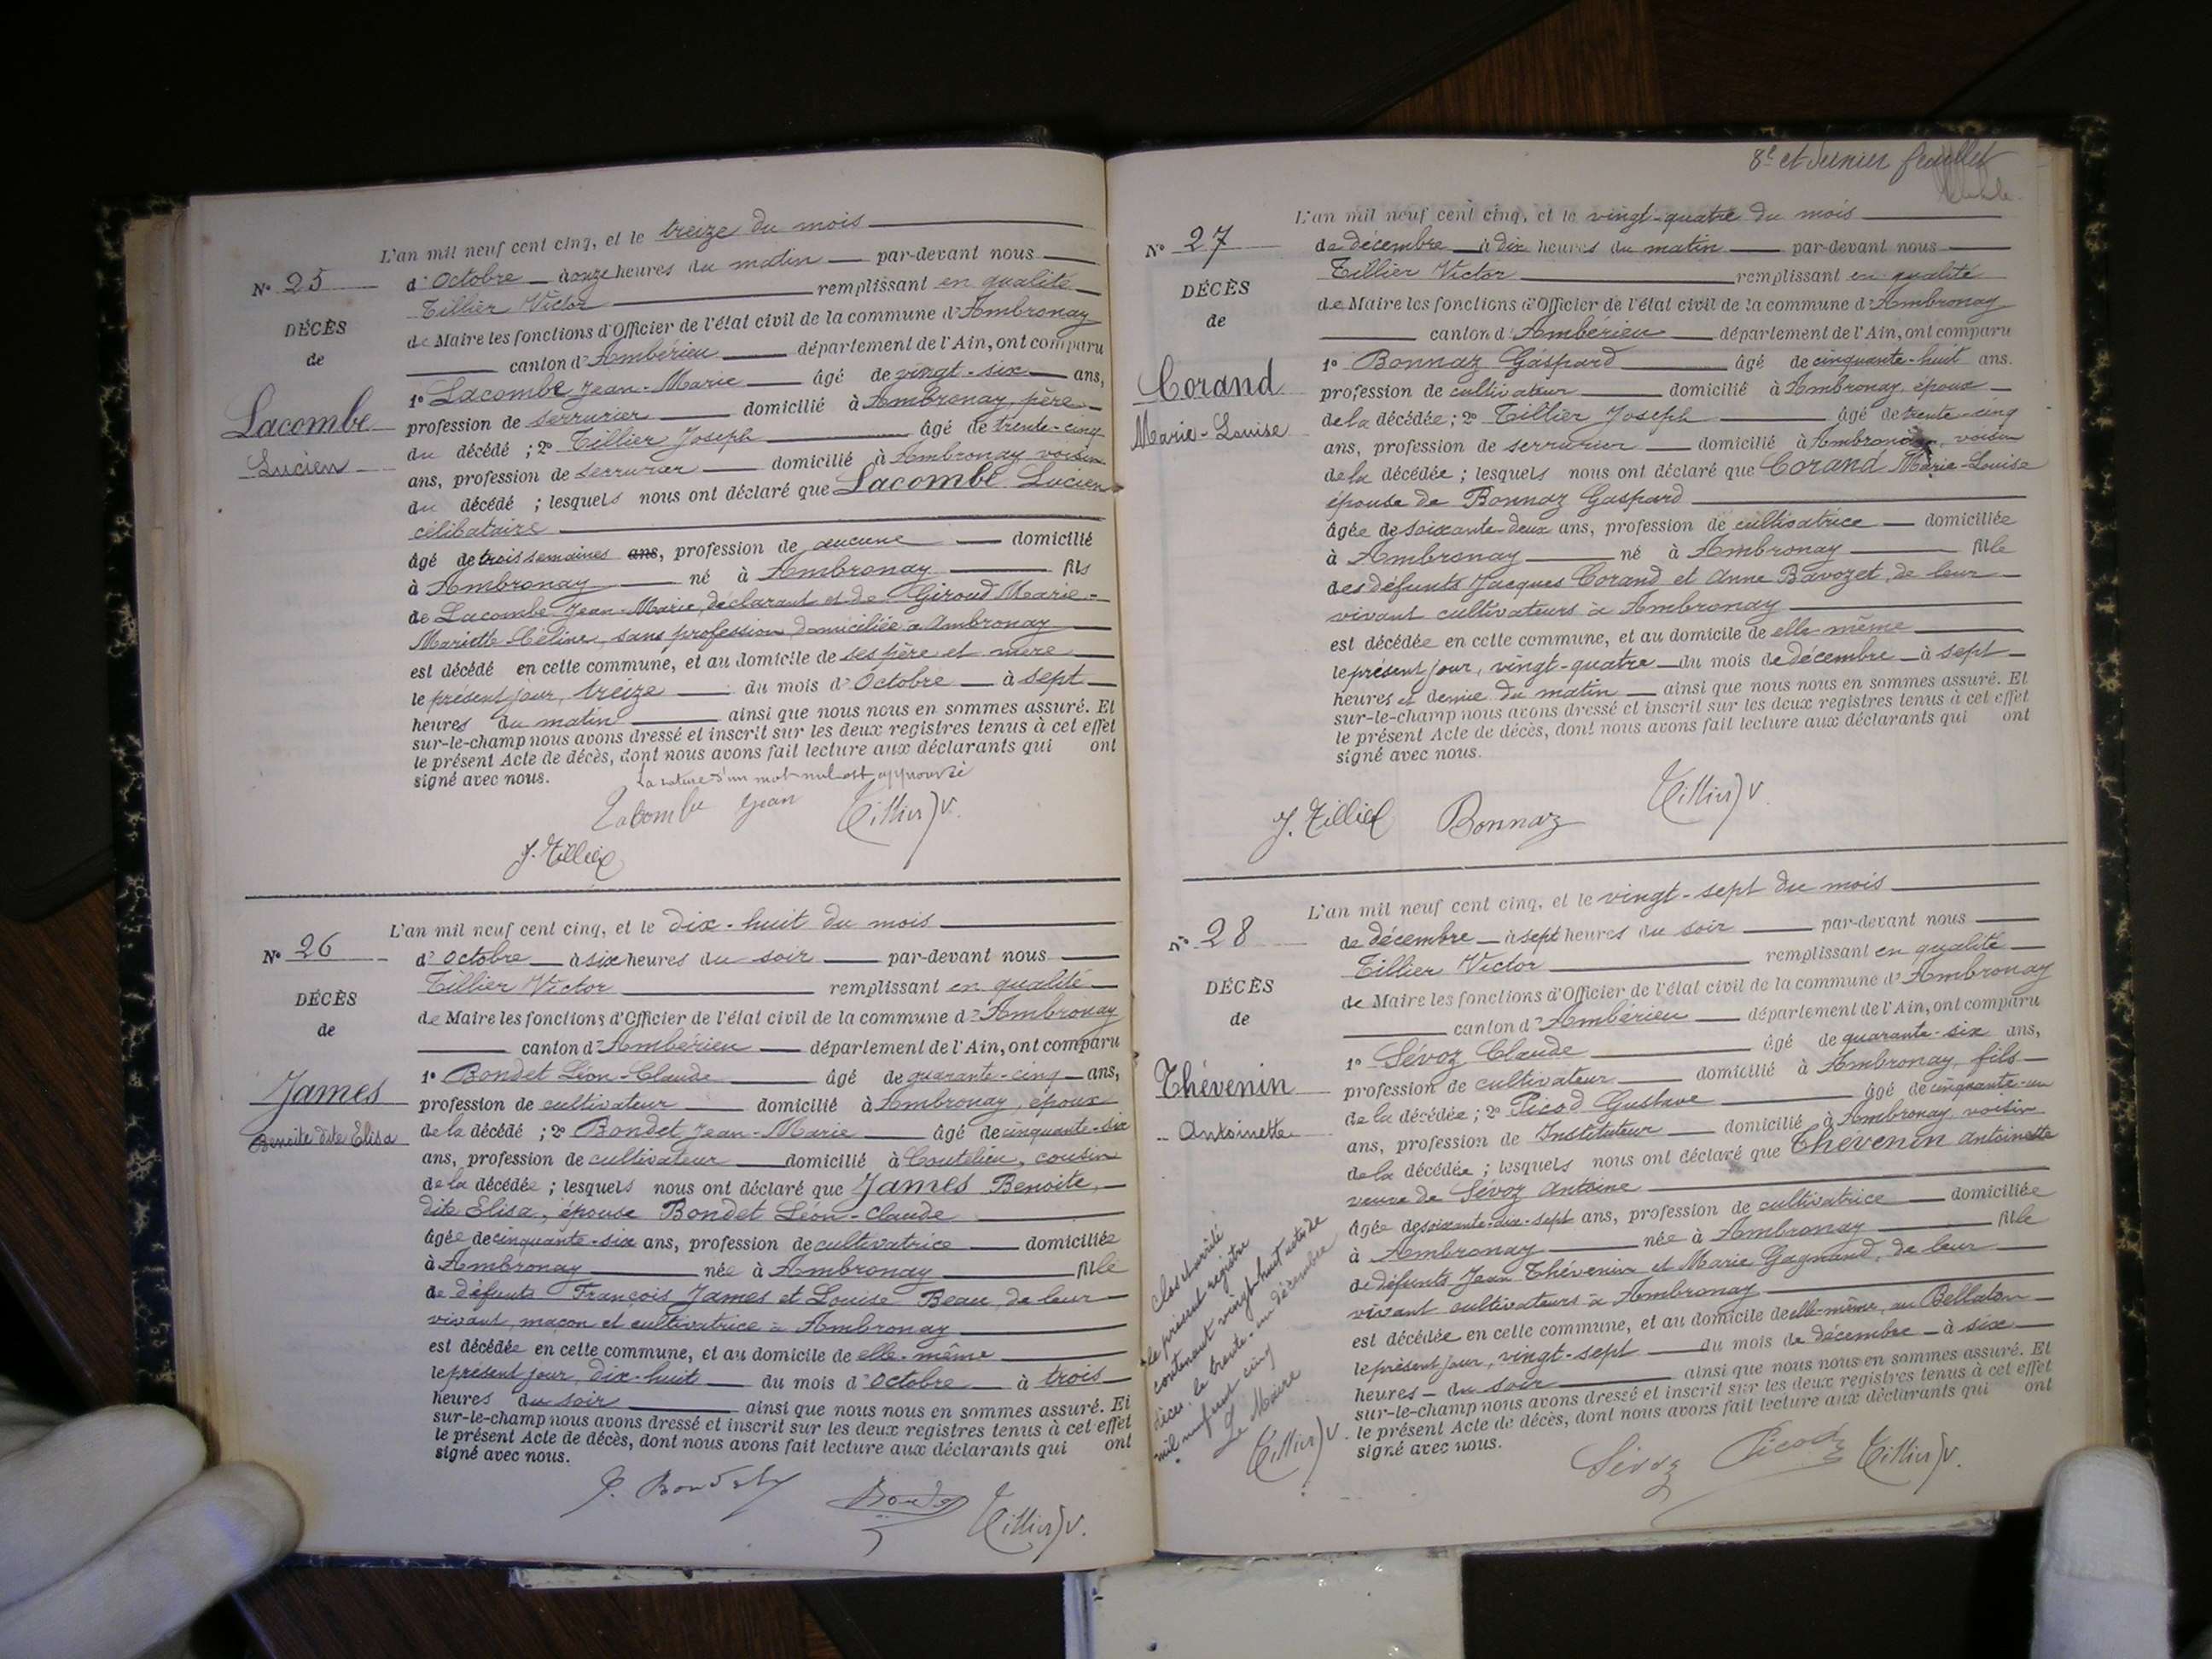 L'an mil neuf cent cinq, et le treize du mois
N° 25
d'Octobre à onze heures du matin par-devant nous
Tillier Victor remplissant en qualité
DÉCÈS
de Maire les fonctions d'Officier de l'état civil de la commune d'Ambronay
de
canton d'Ambérieu département de l'Ain, ont comparu
1° Lacombe Jean-Marie âgé de vingt-six ans,
Lacombe
profession de serrurier domicilié à Ambronay, père
du décédé ; 2° Tillier Joseph âgé de trente-cinq
Lucien
ans, profession de serrurier domicilié à Ambronay voisin
du décédé ; lesquels nous ont déclaré que Lacombe Lucien
célibataire
âgé de trois semaines ans, profession de aucune domicilié
à Ambronay né à Ambronay fils
de Lacombe Jean-Marie, déclarant et de Giroud Marie-
Mariette Céline, sans profession domiciliée à Ambronay
est décédé en cette commune, et au domicile de ses père et mère
le présent jour, treize du mois d'Octobre à sept
heures du matin ainsi que nous nous en sommes assuré. Et
sur-le-champ nous avons dressé et inscrit sur les deux registres tenus à cet effet
le présent Acte de décès, dont nous avons fait lecture aux déclarants qui ont
signé avec nous. La rature d'un mot nul est approuvée
Lacombe Jean Tillier V.
J. Tillier
L'an mil neuf cent cinq, et le dix-huit du mois
N° 26
d'Octobre à six heures du soir par-devant nous
Tillier Victor remplissant en qualité
DÉCÈS
de Maire les fonctions d'Officier de l'état civil de la commune d'Ambronay
de
canton d'Ambérieu département de l'Ain, ont comparu
1° Bondet Léon-Claude âgé de quarante-cinq ans,
James
profession de cultivateur domicilié à Ambronay, époux
Benoite dite Elisa
de la décédé ; 2° Bondet Jean-Marie âgé de cinquante-six
ans, profession de cultivateur domicilié à Coutelieu, cousin
de la décédée ; lesquels nous ont déclaré que James Benoite,
dite Elisa, épouse Bondet Léon-Claude
âgée de cinquante-six ans, profession de cultivatrice domiciliée
à Ambronay née à Ambronay fille
de défunts François James et Louise Beau, de leur
vivant, maçon et cultivatrice à Ambronay
est décédée en cette commune, et au domicile de elle-même
le présent jour, dix-huit du mois d'Octobre à trois
heures du soir ainsi que nous nous en sommes assuré. Et
sur-le-champ nous avons dressé et inscrit sur les deux registres tenus à cet effet
le présent Acte de décès, dont nous avons fait lecture aux déclarants qui ont
signé avec nous.
Bondet Tillier V.
8e et dernier feuillet
L'an mil neuf cent cinq, et le vingt-quatre du mois
N° 27
de décembre à dix heures du matin par-devant nous
Tillier Victor remplissant en qualité
DÉCÈS
de Maire les fonctions d'Officier de l'état civil de la commune d'Ambronay
de
canton d'Ambérieu département de l'Ain, ont comparu
1° Bonnaz Gaspard âgé de cinquante-huit ans.
Corand
profession de cultivateur domicilié à Ambronay, époux
de la décédée ; 2° Tillier Joseph âgé de trente-cinq
Marie-Louise
ans, profession de serrurier domicilié à Ambronay, voisin
de la décédée ; lesquels nous ont déclaré que Corand Marie-Louise
épouse de Bonnaz Gaspard
âgée de soixante-deux ans, profession de cultivatrice domiciliée
à Ambronay né à Ambronay fille
des défunts Jacques Corand et Anne Bavozet, de leur
vivant cultivateurs à Ambronay
est décédée en cette commune, et au domicile de elle-même
le présent jour, vingt-quatre du mois de décembre à sept
heures et demie du matin ainsi que nous nous en sommes assuré. Et
sur-le-champ nous avons dressé et inscrit sur les deux registres tenus à cet effet
le présent Acte de décès, dont nous avons fait lecture aux déclarants qui ont
signé avec nous.
J. Tillier Bonnaz Tillier V.
L'an mil neuf cent cinq, et le vingt-sept du mois
N° 28
de décembre à sept heures du soir par-devant nous
Tillier Victor remplissant en qualité
DÉCÈS
de Maire les fonctions d'Officier de l'état civil de la commune d'Ambronay
de
canton d'Ambérieu département de l'Ain, ont comparu
1° Sévoz Claude âgé de quarante-six ans,
Thévenin
profession de cultivateur domicilié à Ambronay, fils
de la décédée ; 2° Picod Gustave âgé de cinquante-un
Antoinette
ans, profession de Instituteur domicilié à Ambronay, voisin
de la décédée ; lesquels nous ont déclaré que Thévenin Antoinette
veuve de Sévoz Antoine
âgée de soixante-dix-sept ans, profession de cultivatrice domiciliée
à Ambronay née à Ambronay fille
de défunts Jean Thévenin et Marie Gagnaud, de leur
vivant cultivateurs à Ambronay
est décédée en cette commune, et au domicile de elle-même, au Bellaton
le présent jour, vingt-sept du mois de décembre à six
heures du soir ainsi que nous nous en sommes assuré. Et
sur-le-champ nous avons dressé et inscrit sur les deux registres tenus à cet effet
le présent Acte de décès, dont nous avons fait lecture aux déclarants qui ont
signé avec nous.
Sévoz Picod Tillier V.
Clos et arrêté
le présent registre
contenant vingt-huit actes de
décès le trente-un décembre
mil neuf cent cinq
Le Maire
Tillier V.